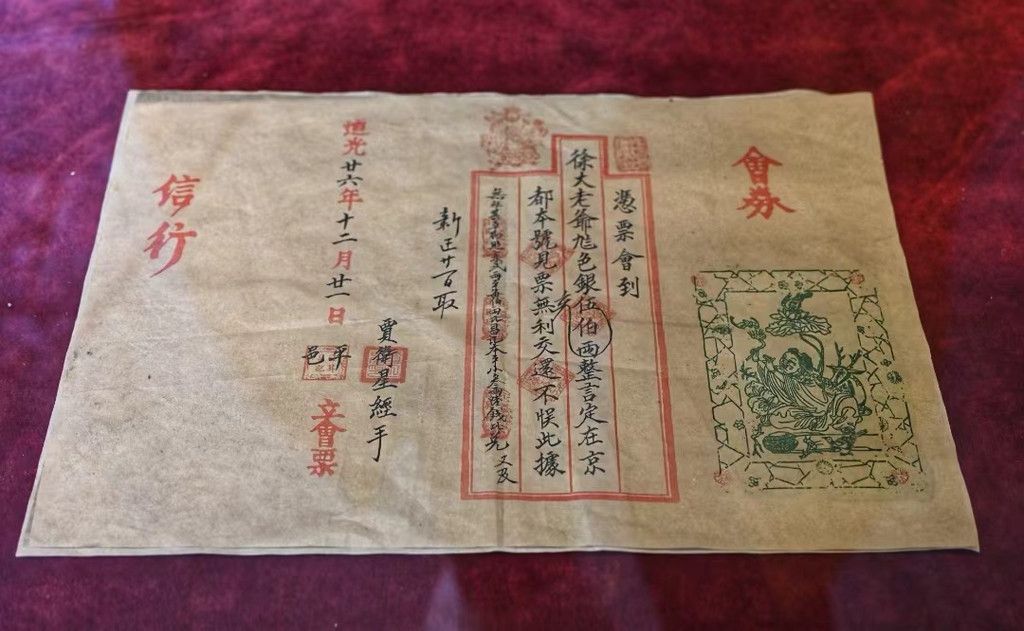 會券
憑票會到
徐大老爺㐌色銀伍伯兩整言定在京
都本號見票無利交還不悞此據
又及
新正廿百取
賈衛星經手
道光廿六年十二月廿一日
平
邑
立會票
信行